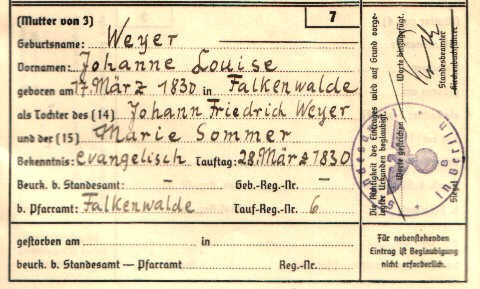 (Mutter von 3) 7
Geburtsname: Weyer
Vornamen: Johanne Louise
geboren am 17. März 1830 in Falkenwalde
als Tochter des (14) Johann Friedrich Weyer
und der (15) Marie Sommer
Bekenntnis: evangelisch Tauftag: 28. März 1830
Beurk. b. Standesamt: – Geb.-Reg.-Nr. –
b. Pfarramt: Falkenwalde Tauf-Reg.-Nr. 6
gestorben am in
beurk. b. Standesamt — Pfarramt Reg.-Nr.
Die Richtigkeit des Eintrages wird auf Grund vorge-
legter Urkunden beglaubigt.
Worte gestrichen Worte hinzugefügt.
Standesbeamter
Kirchenbuchführer
Siegel
in Berlin
Für nebenstehenden
Eintrag ist Beglaubigung
nicht erforderlich.